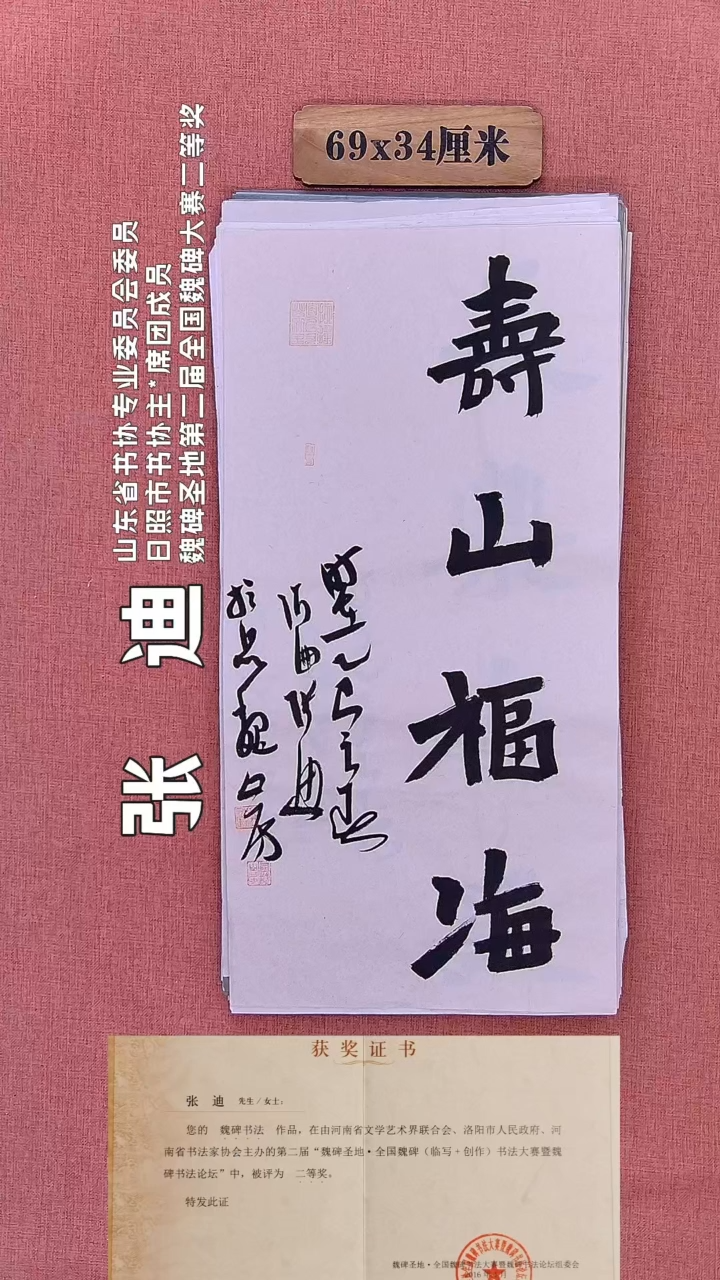 69x34厘米
壽山福海
山东省书协专业委员会委员
日照市书协主*席团成员
魏碑圣地第二届全国魏碑大赛二等奖
张 迪
获奖证书
张 迪 先生/女士:
您的 魏碑书法 作品,在由河南省文学艺术界联合会、洛阳市人民政府、河
南省书法家协会主办的第二届“魏碑圣地·全国魏碑(临写+创作)书法大赛暨魏
碑书法论坛”中,被评为 二等奖。
特发此证
魏碑圣地·全国魏碑书法大赛暨魏碑书法论坛组委会